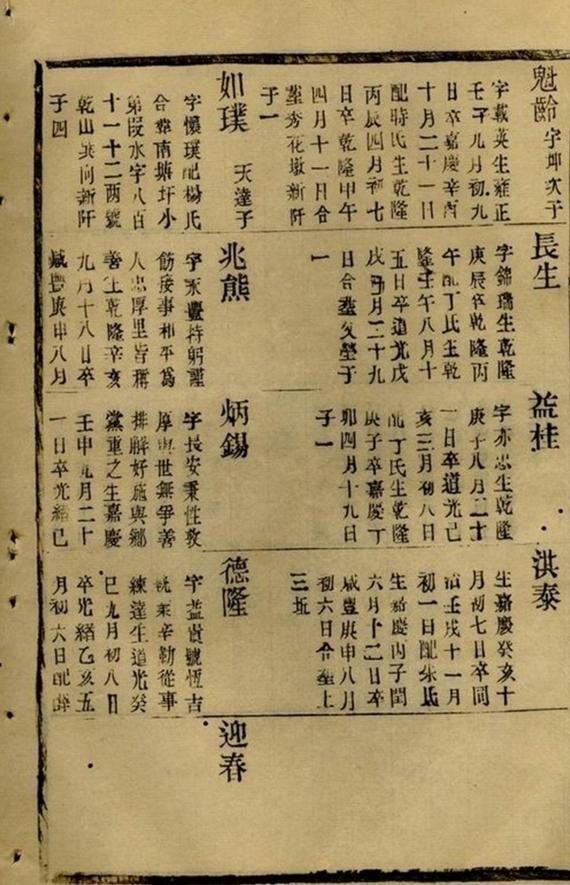 魁齡 字坤次子
字載英生雍正
壬子九月初九
日卒嘉慶辛酉
十月二十一日
配時氏生乾隆
丙辰四月初七
日卒乾隆甲午
四月十一日合
塟秀花墩新阡
子一
如璞 天達子
字懷璞配楊氏
合塟南塘圩小
第叚水字八百
十一十二两號
乾山向新阡
子四
長生
字錦瑞生乾隆
庚辰卒乾隆丙
午配丁氏生乾
隆壬午八月十
五日卒道光戊
戌月二十九
日合塟父塋子
一
兆熊
字永豐持躬謹
飭接事和平為
人忠厚里皆稱
善生乾隆辛亥
九月十八日卒
咸豐庚申八月
益桂
字亦忠生乾隆
庚子八月二十
一日卒道光己
亥三月初八日
配丁氏生乾隆
庚子卒嘉慶丁
卯四月十九日
子一
炳錫
字長安秉性敦
厚與世無爭善
排解好施與鄉
黨重之生嘉慶
壬申九月二十
一日卒光緒己
洪泰
生嘉慶癸亥十
月初七日卒同
治壬戌十一月
初一日配朱氏
生嘉慶丙子閏
六月十二日卒
咸豐庚申八月
初六日合塟上
三坵
德隆
字益貴號恆吉
業辛勤從事
練達生道光癸
巳九月初八日
卒光緒乙亥五
月初六日配薛
迎春